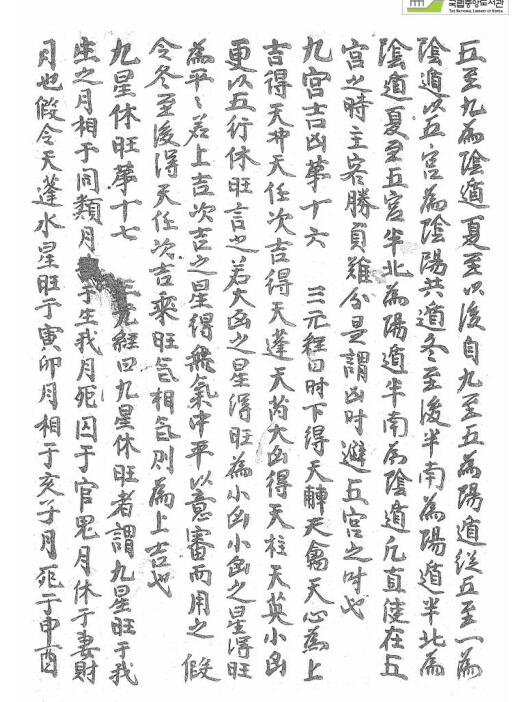 국립중앙도서관
THE NATIONAL LIBRARY OF KOREA
五至九為陰遁夏至以後自九至五為陽遁從五至一為
陰遁以五宮為陰陽共遁冬至後半南為陽遁半北為
陰遁夏至五宮半北為陽遁半南為陰遁凡直使在五
宮之時主客勝負難分是謂凶時避五宮之時也
九宮吉凶苐十六 三元經曰时下得天輔天禽天心為上
吉得天冲天任次吉得天蓬天芮大凶得天柱天英小凶
更以五行休旺言之若大凶之星得旺為小凶小凶之星得旺
為平〻若上吉次吉之星得無氣中平以意審而用之 假
令冬至後得天任次吉乘旺氣相氣則為上吉也
九星休旺苐十七 三元經曰九星休旺者謂九星旺于我
生之月相于同類月 于生我月死囚于官鬼月休于妻財
月也假令天蓬水星旺于寅卯月相于亥子月死于申酉